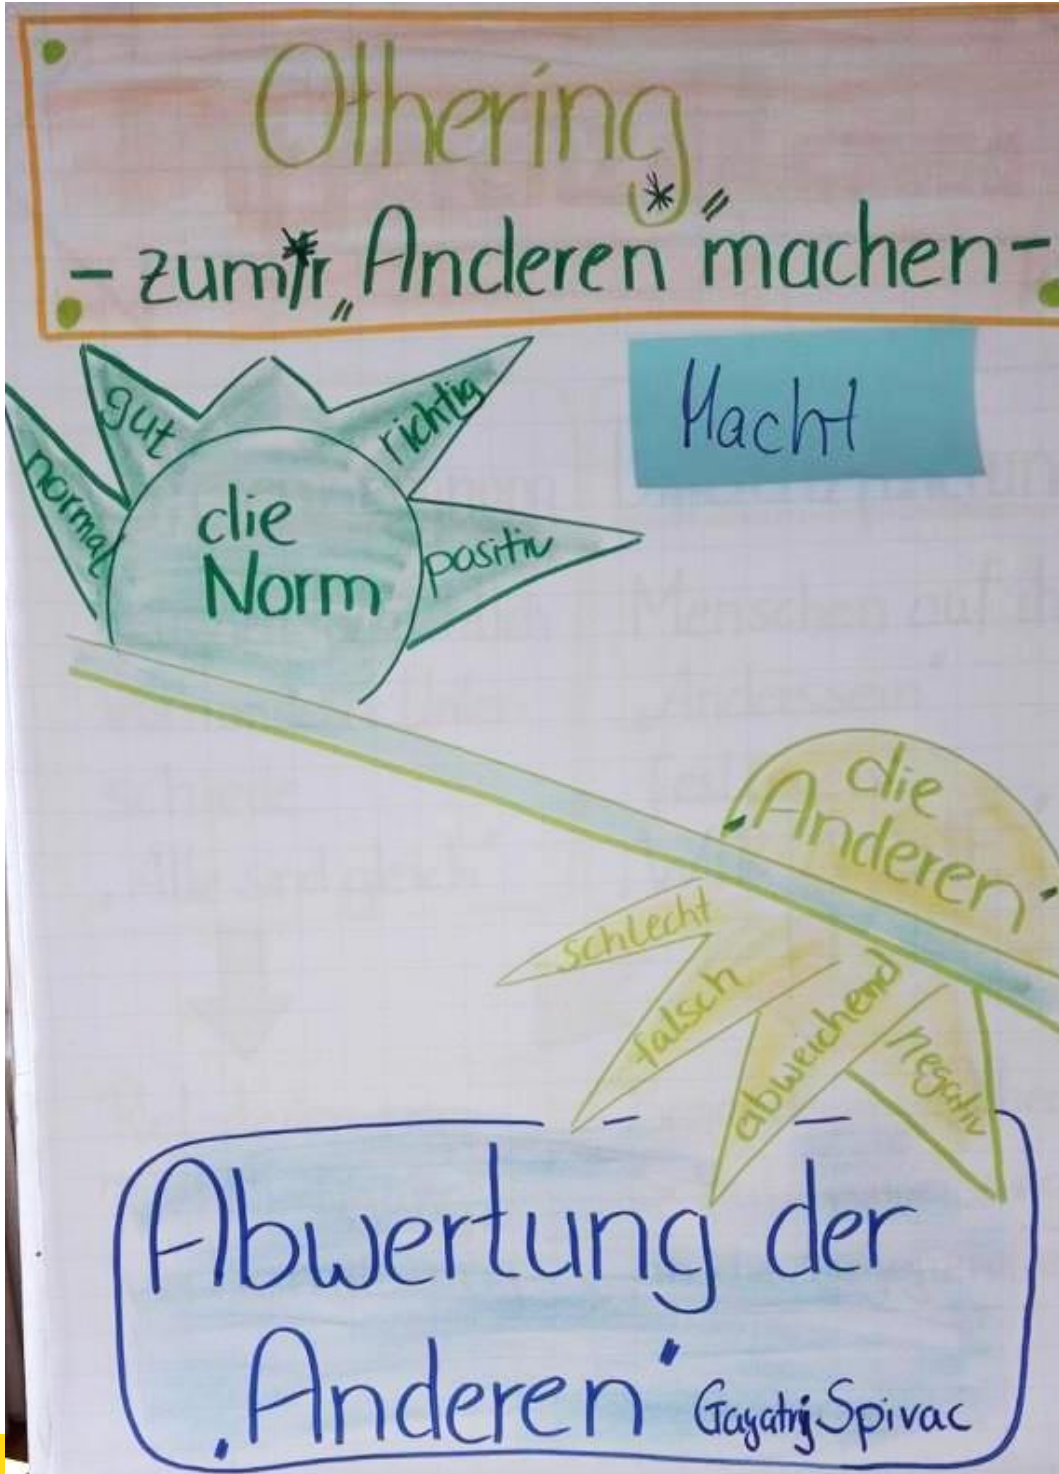 Othering
- zum*r „Anderen*" machen -
Macht
normal
gut
richtig
positiv
die
Norm
die
"Anderen"
schlecht
falsch
abweichend
negativ
Abwertung der
"Anderen" Gayatrij Spivac
Menschen auf